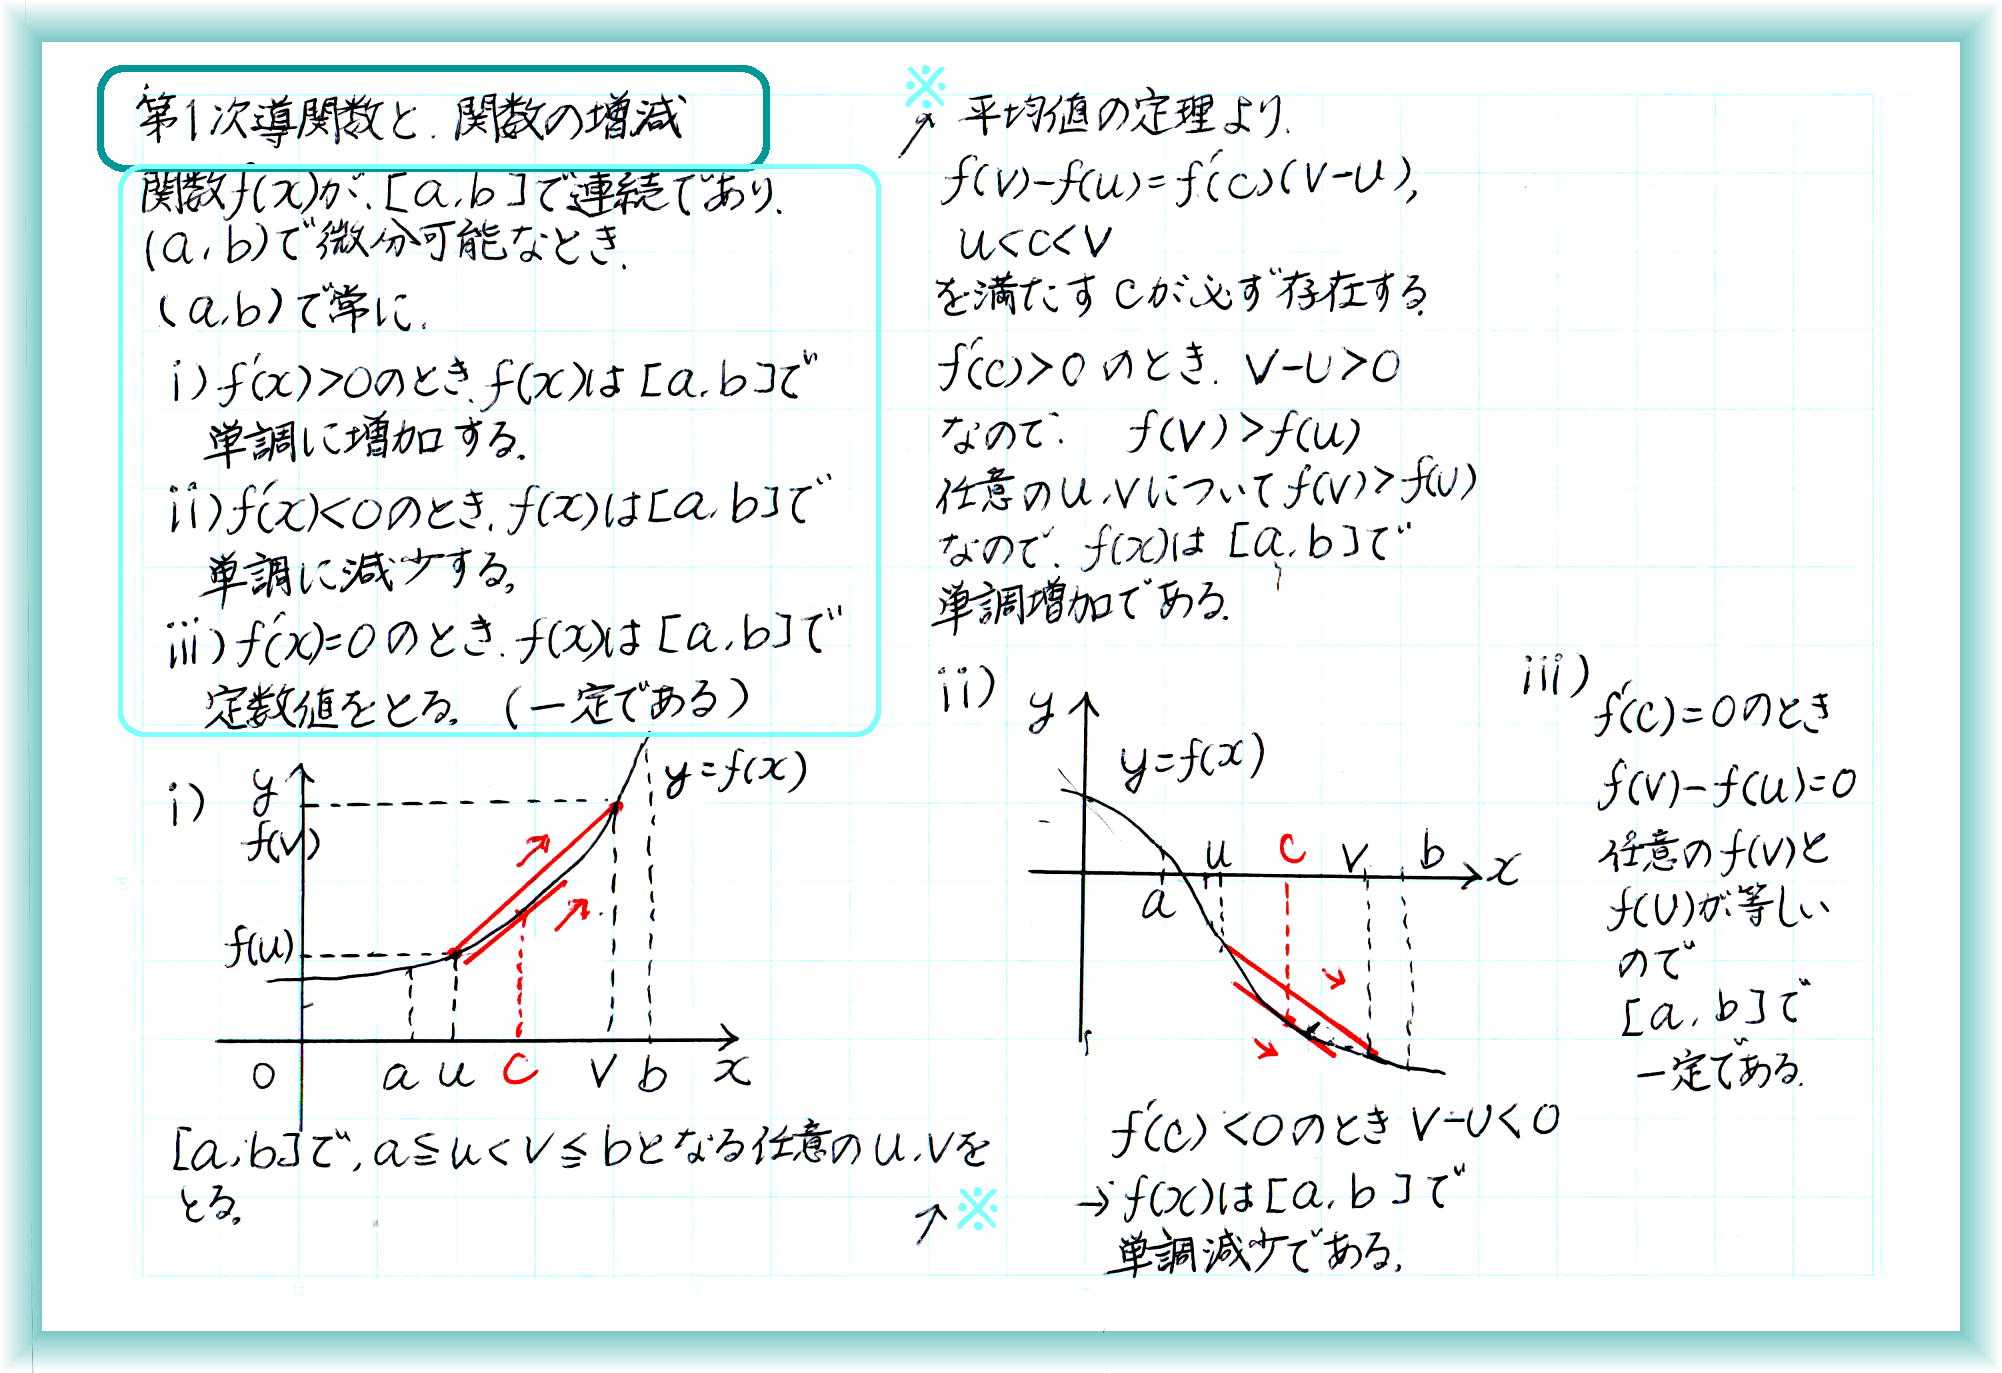 第1次導関数と、関数の増減
関数f(x)が、[a,b]で連続であり、
(a,b)で微分可能なとき、
(a,b)で常に、
i)f'(x)>0のとき、f(x)は[a,b]で
単調に増加する。
ii)f'(x)<0のとき、f(x)は[a,b]で
単調に減少する。
iii)f'(x)=0のとき、f(x)は[a,b]で
定数値をとる。(一定である)
i)
y
f(v)
f(u)
y=f(x)
O a u c v b x
[a,b]で、a≦u<v≦bとなる任意のu,vを
とる。
↗※
※
↗平均値の定理より、
f(v)-f(u)=f'(c)(v-u),
u<c<v
を満たすcが必ず存在する。
f'(c)>0のとき、v-u>0
なので、 f(v)>f(u)
任意のu,vについてf(v)>f(u)
なので、f(x)は[a,b]で
単調増加である。
ii)
y
y=f(x)
a u c v b x
f'(c)<0のときv-u<0
→f(x)は[a,b]で
単調減少である。
iii)
f'(c)=0のとき
f(v)-f(u)=0
任意のf(v)と
f(u)が等しい
ので
[a,b]で
一定である。